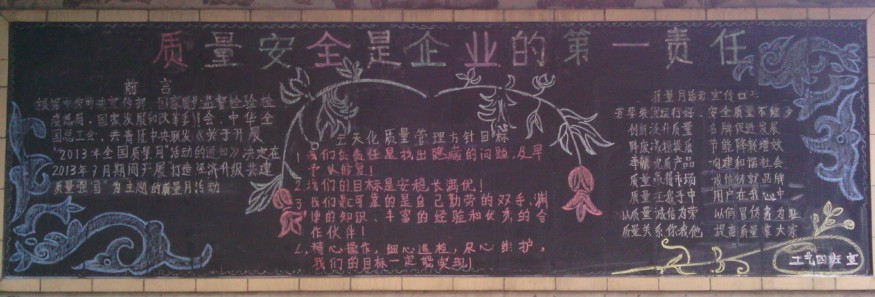 质量安全是企业的第一责任
前言
根据中央宣传部、国家质量监督检验检
疫总局、国家发展和改革委员会、中华全
国总工会、共青团中央联发《关于开展
"2013年全国质量月"活动的通知》决定在
2013年9月期间开展"打造经济升级共建
质量强国"为主题的质量月活动
天化质量管理方针目标
1、我们的责任是找出隐藏的问题,及早
予以解决!
2、我们的目标是安稳长满优!
3、我们最可靠的是自己勤劳的双手、渊
博的知识、丰富的经验和优秀的合
作伙伴!
4、精心操作,细心巡检,尽心维护,
我们的目标一定能实现!
质量月活动宣传口号
运行好 安全质量不能少
创新提升质量 名牌促进发展
节能降耗增效
产品 构建和谐社会
市场 诚信铸就品牌
质量在我手中 用户在我心中
以质量诚信为荣 以假冒伪劣为耻
质量关系你我他 提高质量靠大家
工气四班宣